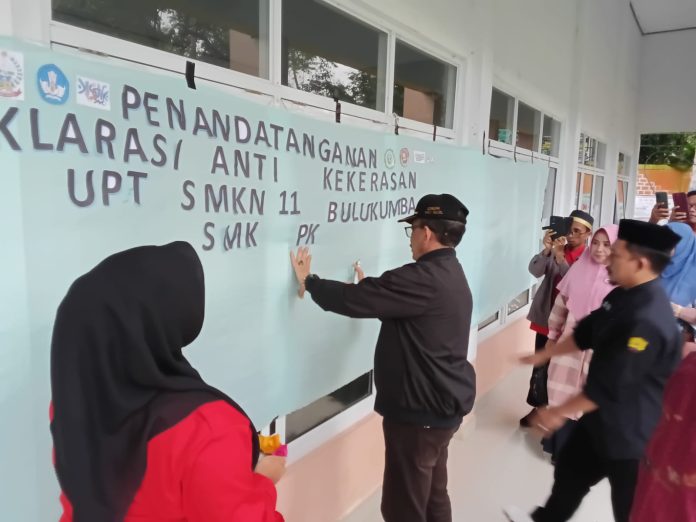 PENANDATANGANAN
KLARASI ANTI KEKERASAN
UPT SMKN 11 BULUKUMBA
SMK PK